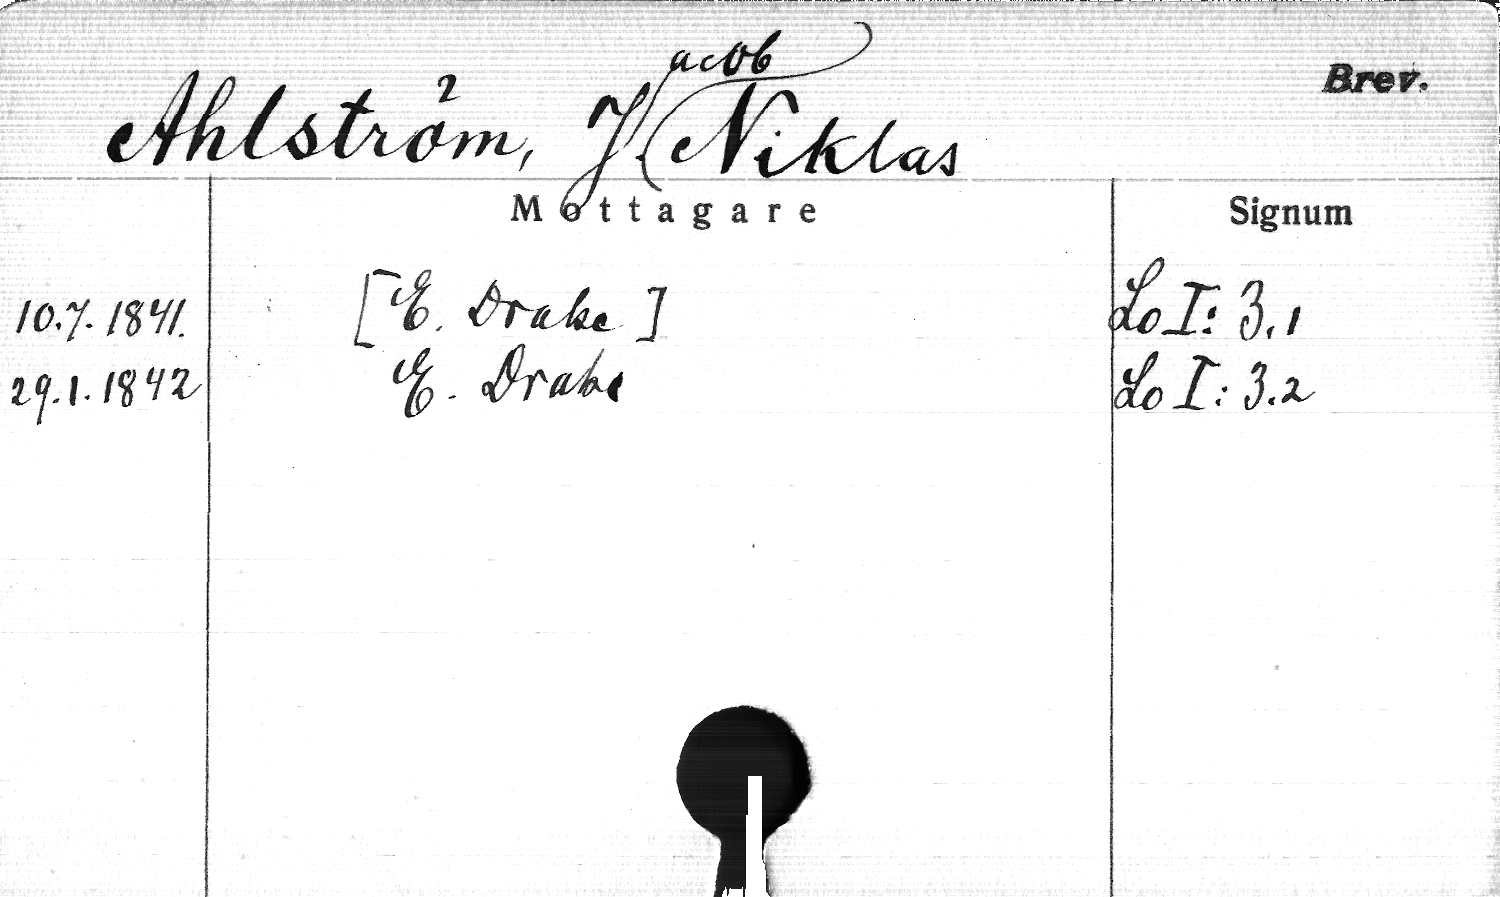 Brev.
Ahlström, J(acob) Niklas
Mottagare Signum
10.7.1841. [E. Drake] Lo I: 3.1
29.1.1842 E. Drake Lo I: 3.2